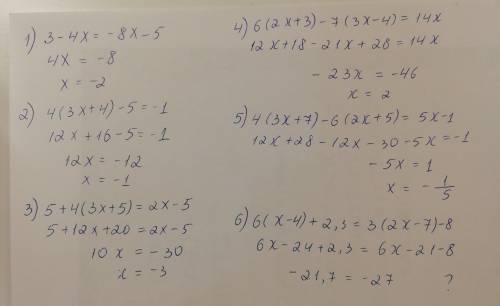 1) 3-4x = -8x-5
4x = -8
x = -2
2) 4(3x+4)-5=-1
12x+16-5=-1
12x = -12
x = -1
3) 5+4(3x+5)=2x-5
5+12x+20=2x-5
10x = -30
x = -3
4) 6(2x+3)-7(3x-4)=14x
12x+18-21x+28=14x
-23x = -46
x = 2
5) 4(3x+7)-6(2x+5)=5x-1
12x+28-12x-30-5x=-1
-5x=1
x = -1/5
6) 6(x-4)+2,3=3(2x-7)-8
6x-24+2,3=6x-21-8
-21,7=-27 ?